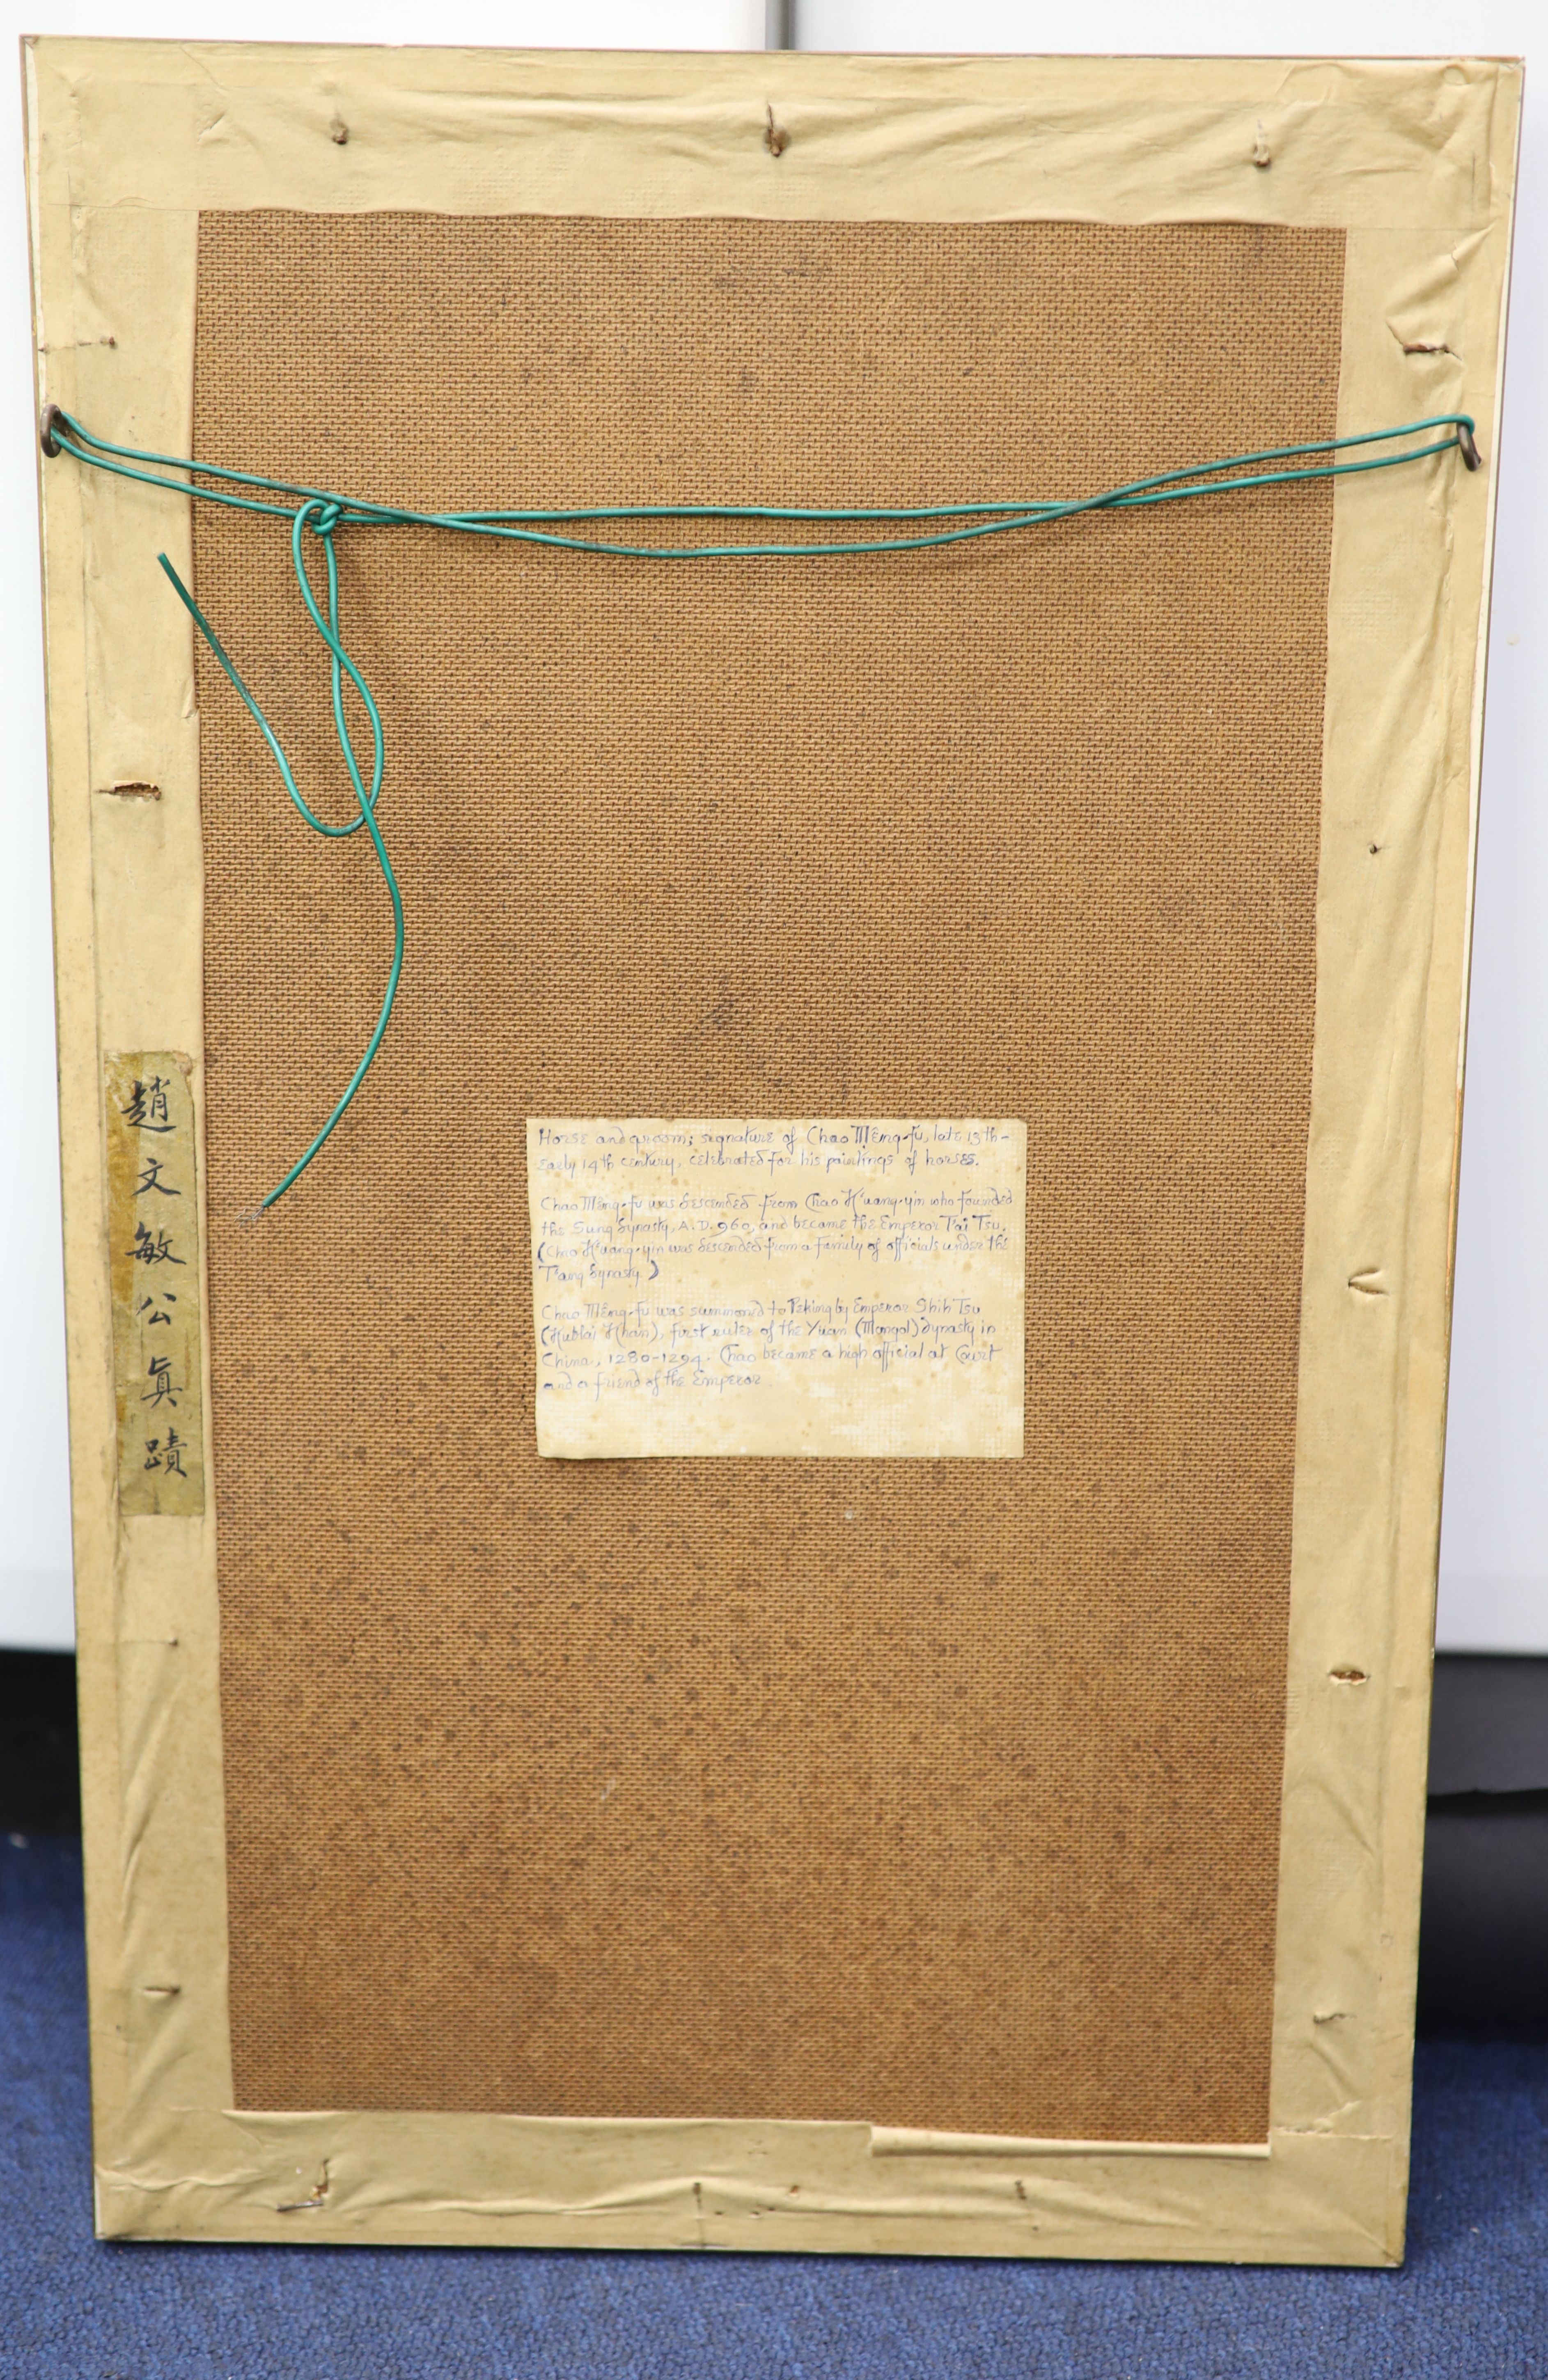 趙文敏公眞蹟
Horse and groom; signature of Chao Mêng-fu, late 13th-
early 14th century, celebrated for his paintings of horses.
Chao Mêng-fu was descended from Chao K'uang-yin who founded
the Sung dynasty, A.D. 960, and became the Emperor T'ai Tsu.
(Chao K'uang-yin was descended from a family of officials under the
T'ang dynasty.)
Chao Mêng-fu was summond to Peking by Emperor Shih Tsu
(Kublai Khan), first ruler of the Yuan (Mongol) dynasty in
China, 1280-1294. Chao became a high official at Court
and a friend of the Emperor.